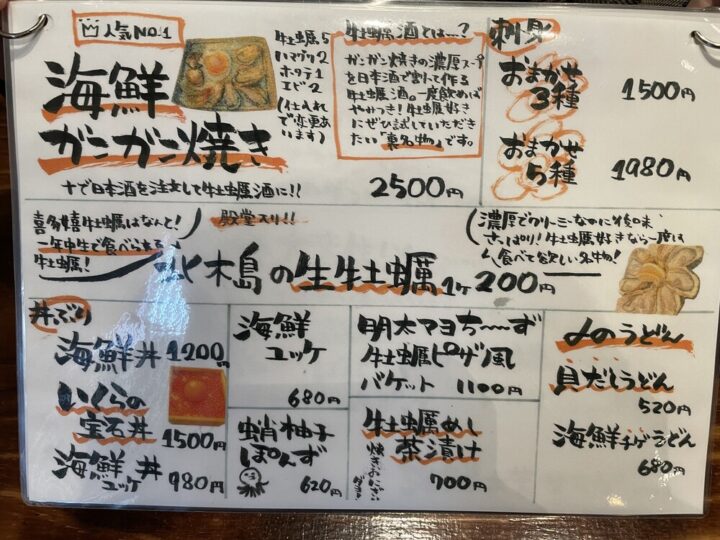 人気NO.1
海鮮
ガンガン焼き
牡蠣5
ハマグリ2
ホタテ1
エビ2
(仕入れ
で変更あ
います)
十で日本酒を注文して牡蠣酒に!!
2500円
牡蠣酒とは…?
ガンガン焼きの濃厚スープ
を日本酒で割って作る
牡蠣酒。一度飲めば
やみつき!牡蠣好き
にぜひ試していただき
たい「裏名物」です。
刺身
おまかせ
3種
1500円
おまかせ
5種
1980円
喜多嬉牡蠣はなんと!
一年中生で食べられる
牡蠣!
殿堂入り!!
北木島の生牡蠣 1ヶ 200円
濃厚でクリーミーなのに後味
さっぱり!牡蠣好きなら一度は
食べて欲しい名物!
丼ぶり
海鮮丼 1200円
いくらの
宝石丼
1500円
海鮮
ユッケ
丼
980円
海鮮
ユッケ
680円
蛸柚子
ぽんず
620円
明太マヨち〜ず
牡蠣ピザ風
バケット 1100円
牡蠣めし
茶漬け
700円
〆のうどん
貝だしうどん
520円
海鮮チゲうどん
680円